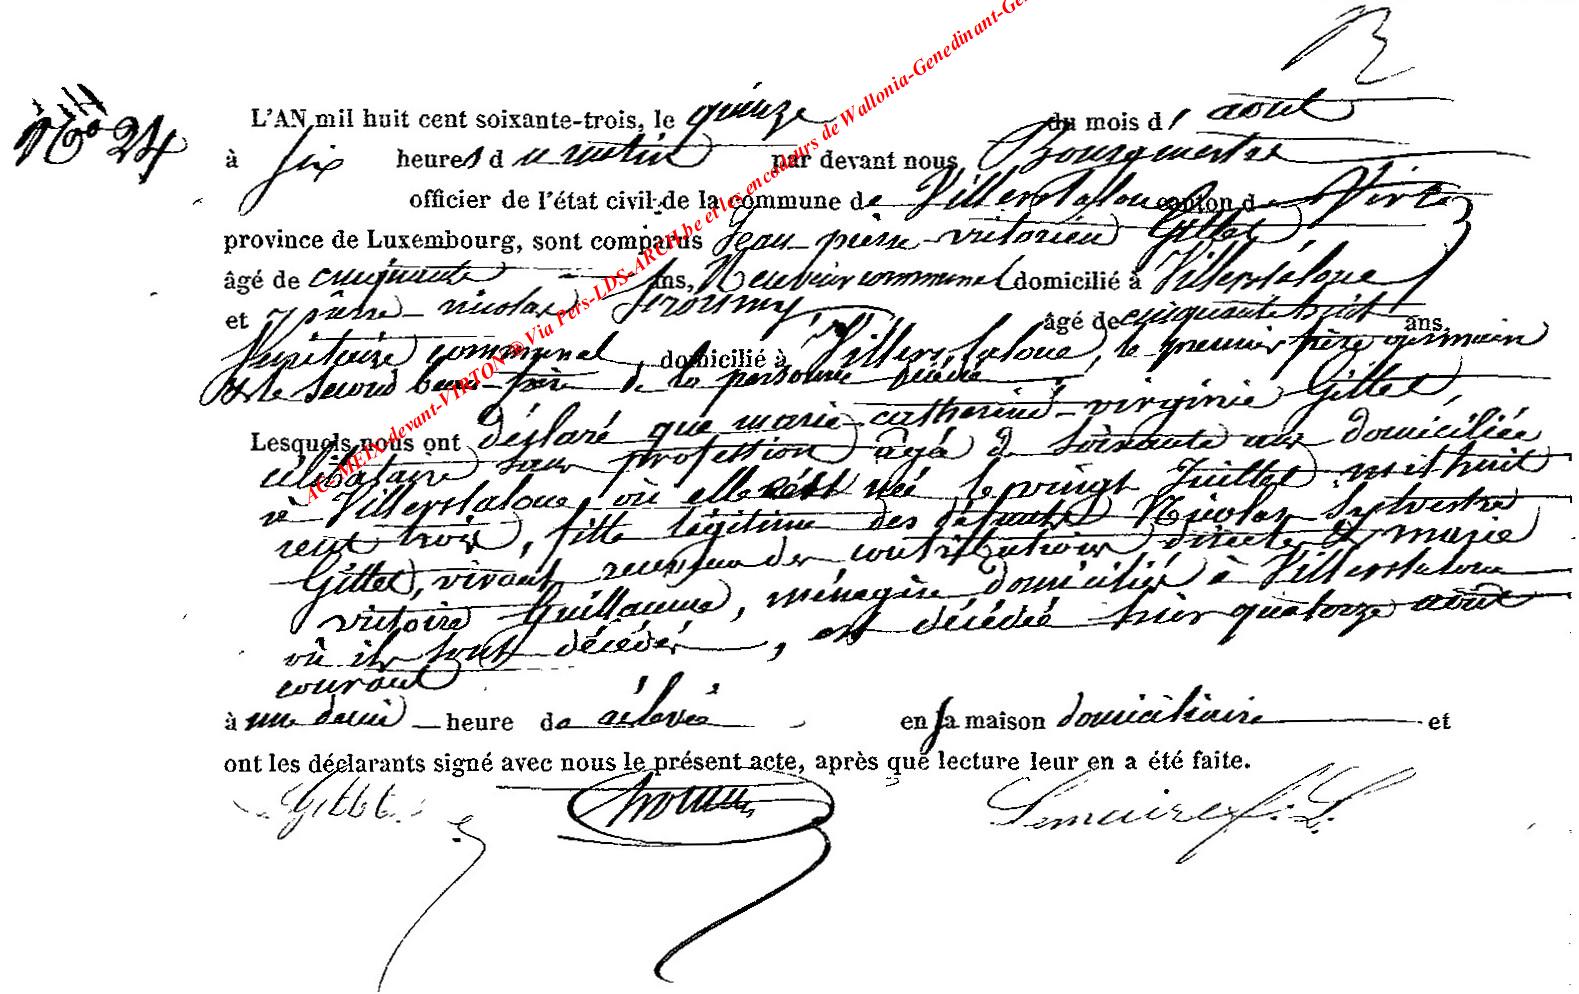 N° 24
L'AN mil huit cent soixante-trois, le quinze du mois d' août
à six heures du matin par devant nous Bourgmestre
officier de l'état civil de la commune de Villerslaloue canton de Virton
province de Luxembourg, sont comparus Jean-pierre-victorien Gillet
âgé de cinquante ans, Receveur communal domicilié à Villerslaloue
et pierre-nicolas âgé de cinquante huit ans,
Secrétaire communal, domicilié à Villerslaloue, le premier frère germain
et le second beau-frère de la personne
Lesquels nous ont déclaré que marie-catherine-virginie Gillet,
célibataire sans profession âgée de soixante ans domiciliée
à Villerslaloue où elle est née le vingt Juillet mil huit
cent trois, fille légitime des défunts Nicolas Sylvestre
Gillet, vivant receveur des contributions directes & marie
victoire Guillaume, ménagère domiciliés à Villerslaloue
où ils sont décédés, est décédée hier quatorze août
courant
à une demi heure de relevée en sa maison domiciliaire et
ont les déclarants signé avec nous le présent acte, après que lecture leur en a été faite.
Gillet Lemaire
AC-MEIX-devant-VIRTON @ Via Pers-LDS-ARCH.be et les encodeurs de Wallonia-Genedinant-Ge